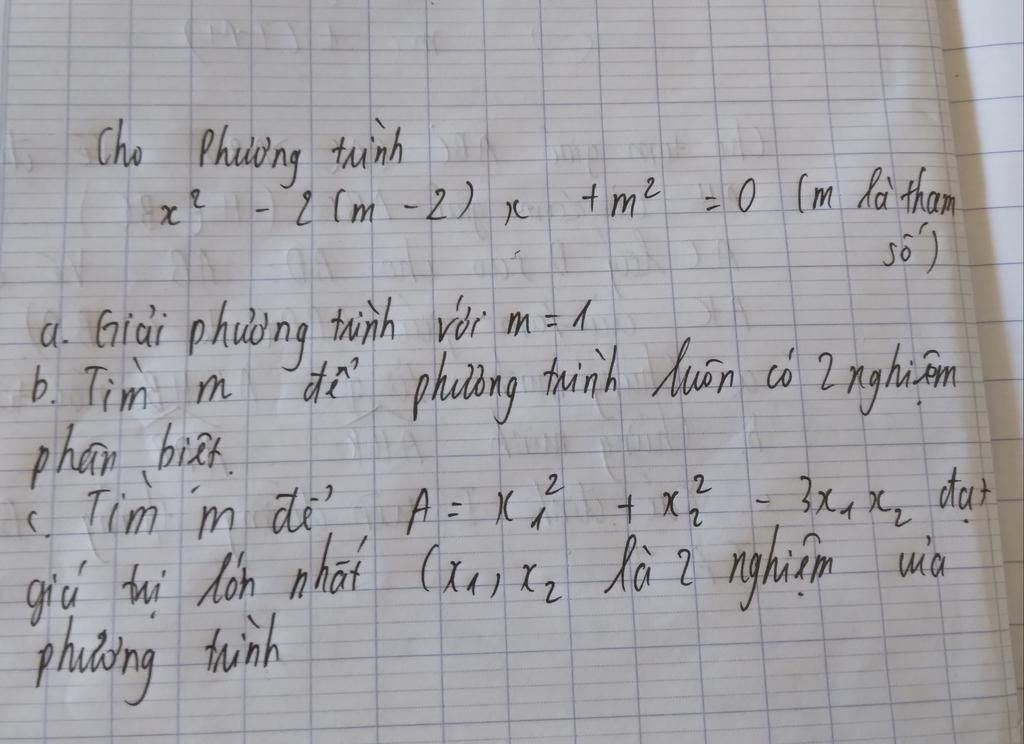 Cho Phương trình
x² - 2(m - 2) x + m² = 0 (m là tham
số)
a. Giải phương trình với m = 1
b. Tìm m để phương trình luôn có 2 nghiệm
phân biệt.
c. Tìm m để A = x₁² + x₂² - 3x₁x₂ đạt
giá trị lớn nhất (x₁, x₂ là 2 nghiệm của
phương trình